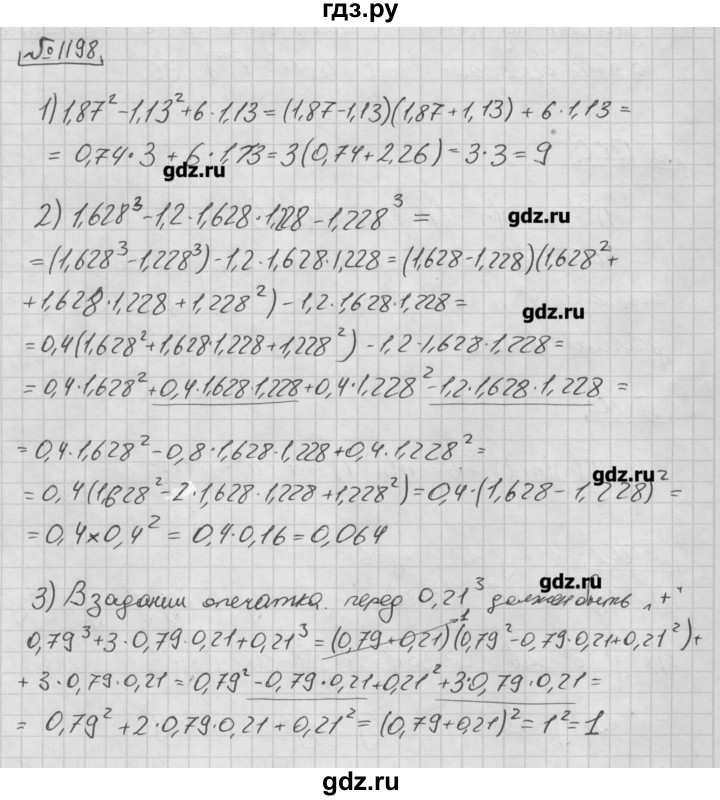 гдз.ру
№1198.
1) 1,87² - 1,13² + 6·1,13 = (1,87-1,13)(1,87+1,13) + 6·1,13 =
= 0,74·3 + 6·1,13 = 3(0,74+2,26) = 3·3 = 9
gdz.ru
2) 1,628³ - 1,2·1,628·1,228 - 1,228³ =
gdz.ru
= (1,628³ - 1,228³) - 1,2·1,628·1,228 = (1,628-1,228)(1,628² +
+ 1,628·1,228 + 1,228²) - 1,2·1,628·1,228 =
gdz.ru
= 0,4(1,628² + 1,628·1,228 + 1,228²) - 1,2·1,628·1,228 =
= 0,4·1,628² + 0,4·1,628·1,228 + 0,4·1,228² - 1,2·1,628·1,228 =
= 0,4·1,628² - 0,8·1,628·1,228 + 0,4·1,228² =
gdz.ru
= 0,4(1,628² - 2·1,628·1,228 + 1,228²) = 0,4·(1,628 - 1,228)² =
= 0,4×0,4² = 0,4·0,16 = 0,064
gdz.ru
3) В задании опечатка. перед 0,21³ должен быть „+"
1
0,79³ + 3·0,79·0,21 + 0,21³ = (0,79+0,21)(0,79² - 0,79·0,21 + 0,21²) +
+ 3·0,79·0,21 = 0,79² - 0,79·0,21 + 0,21² + 3·0,79·0,21 =
= 0,79² + 2·0,79·0,21 + 0,21² = (0,79+0,21)² = 1² = 1
gdz.ru